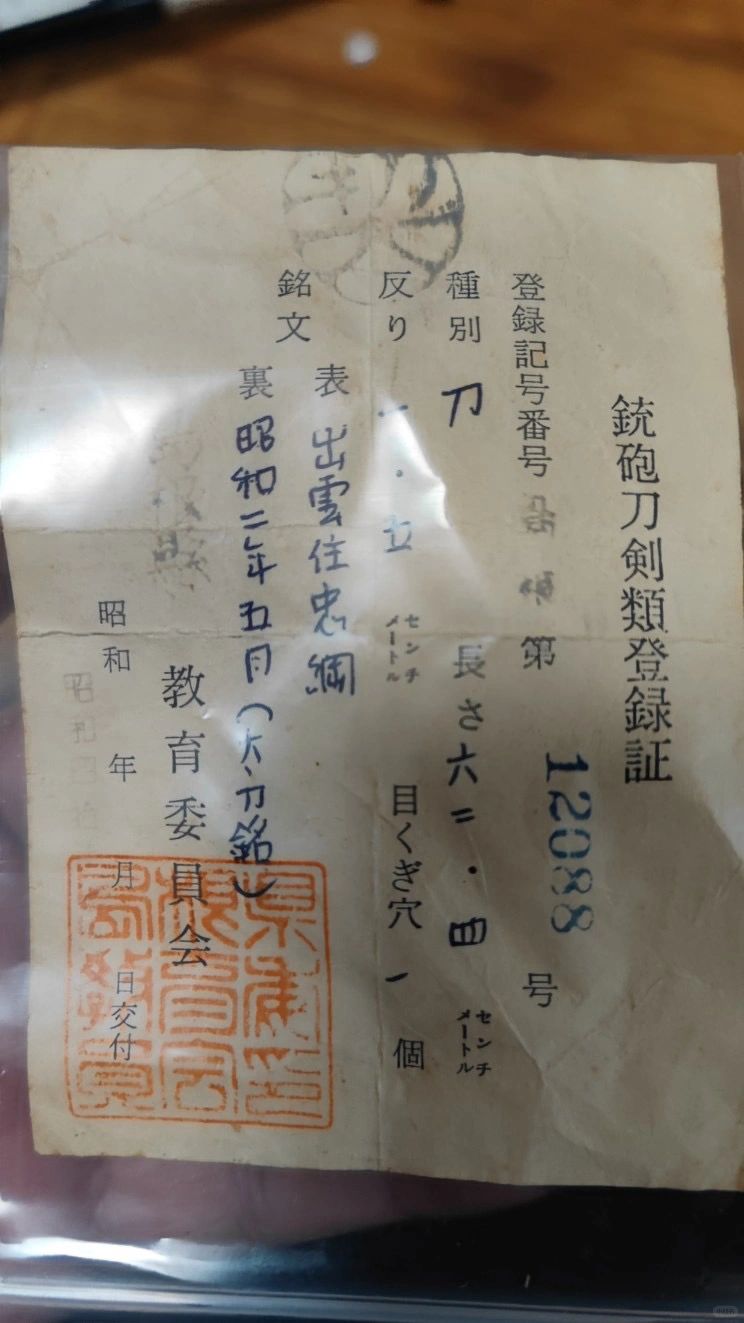 銃砲刀剣類登録証
登録記号番号 第 12088 号
種別 刀 長さ 六二・四 センチメートル
反り 一・五 センチメートル 目くぎ穴 一 個
銘文 表 出雲住忠綱
裏 昭和二年五月(太刀銘)
教育委員会
昭和 年 月 日交付